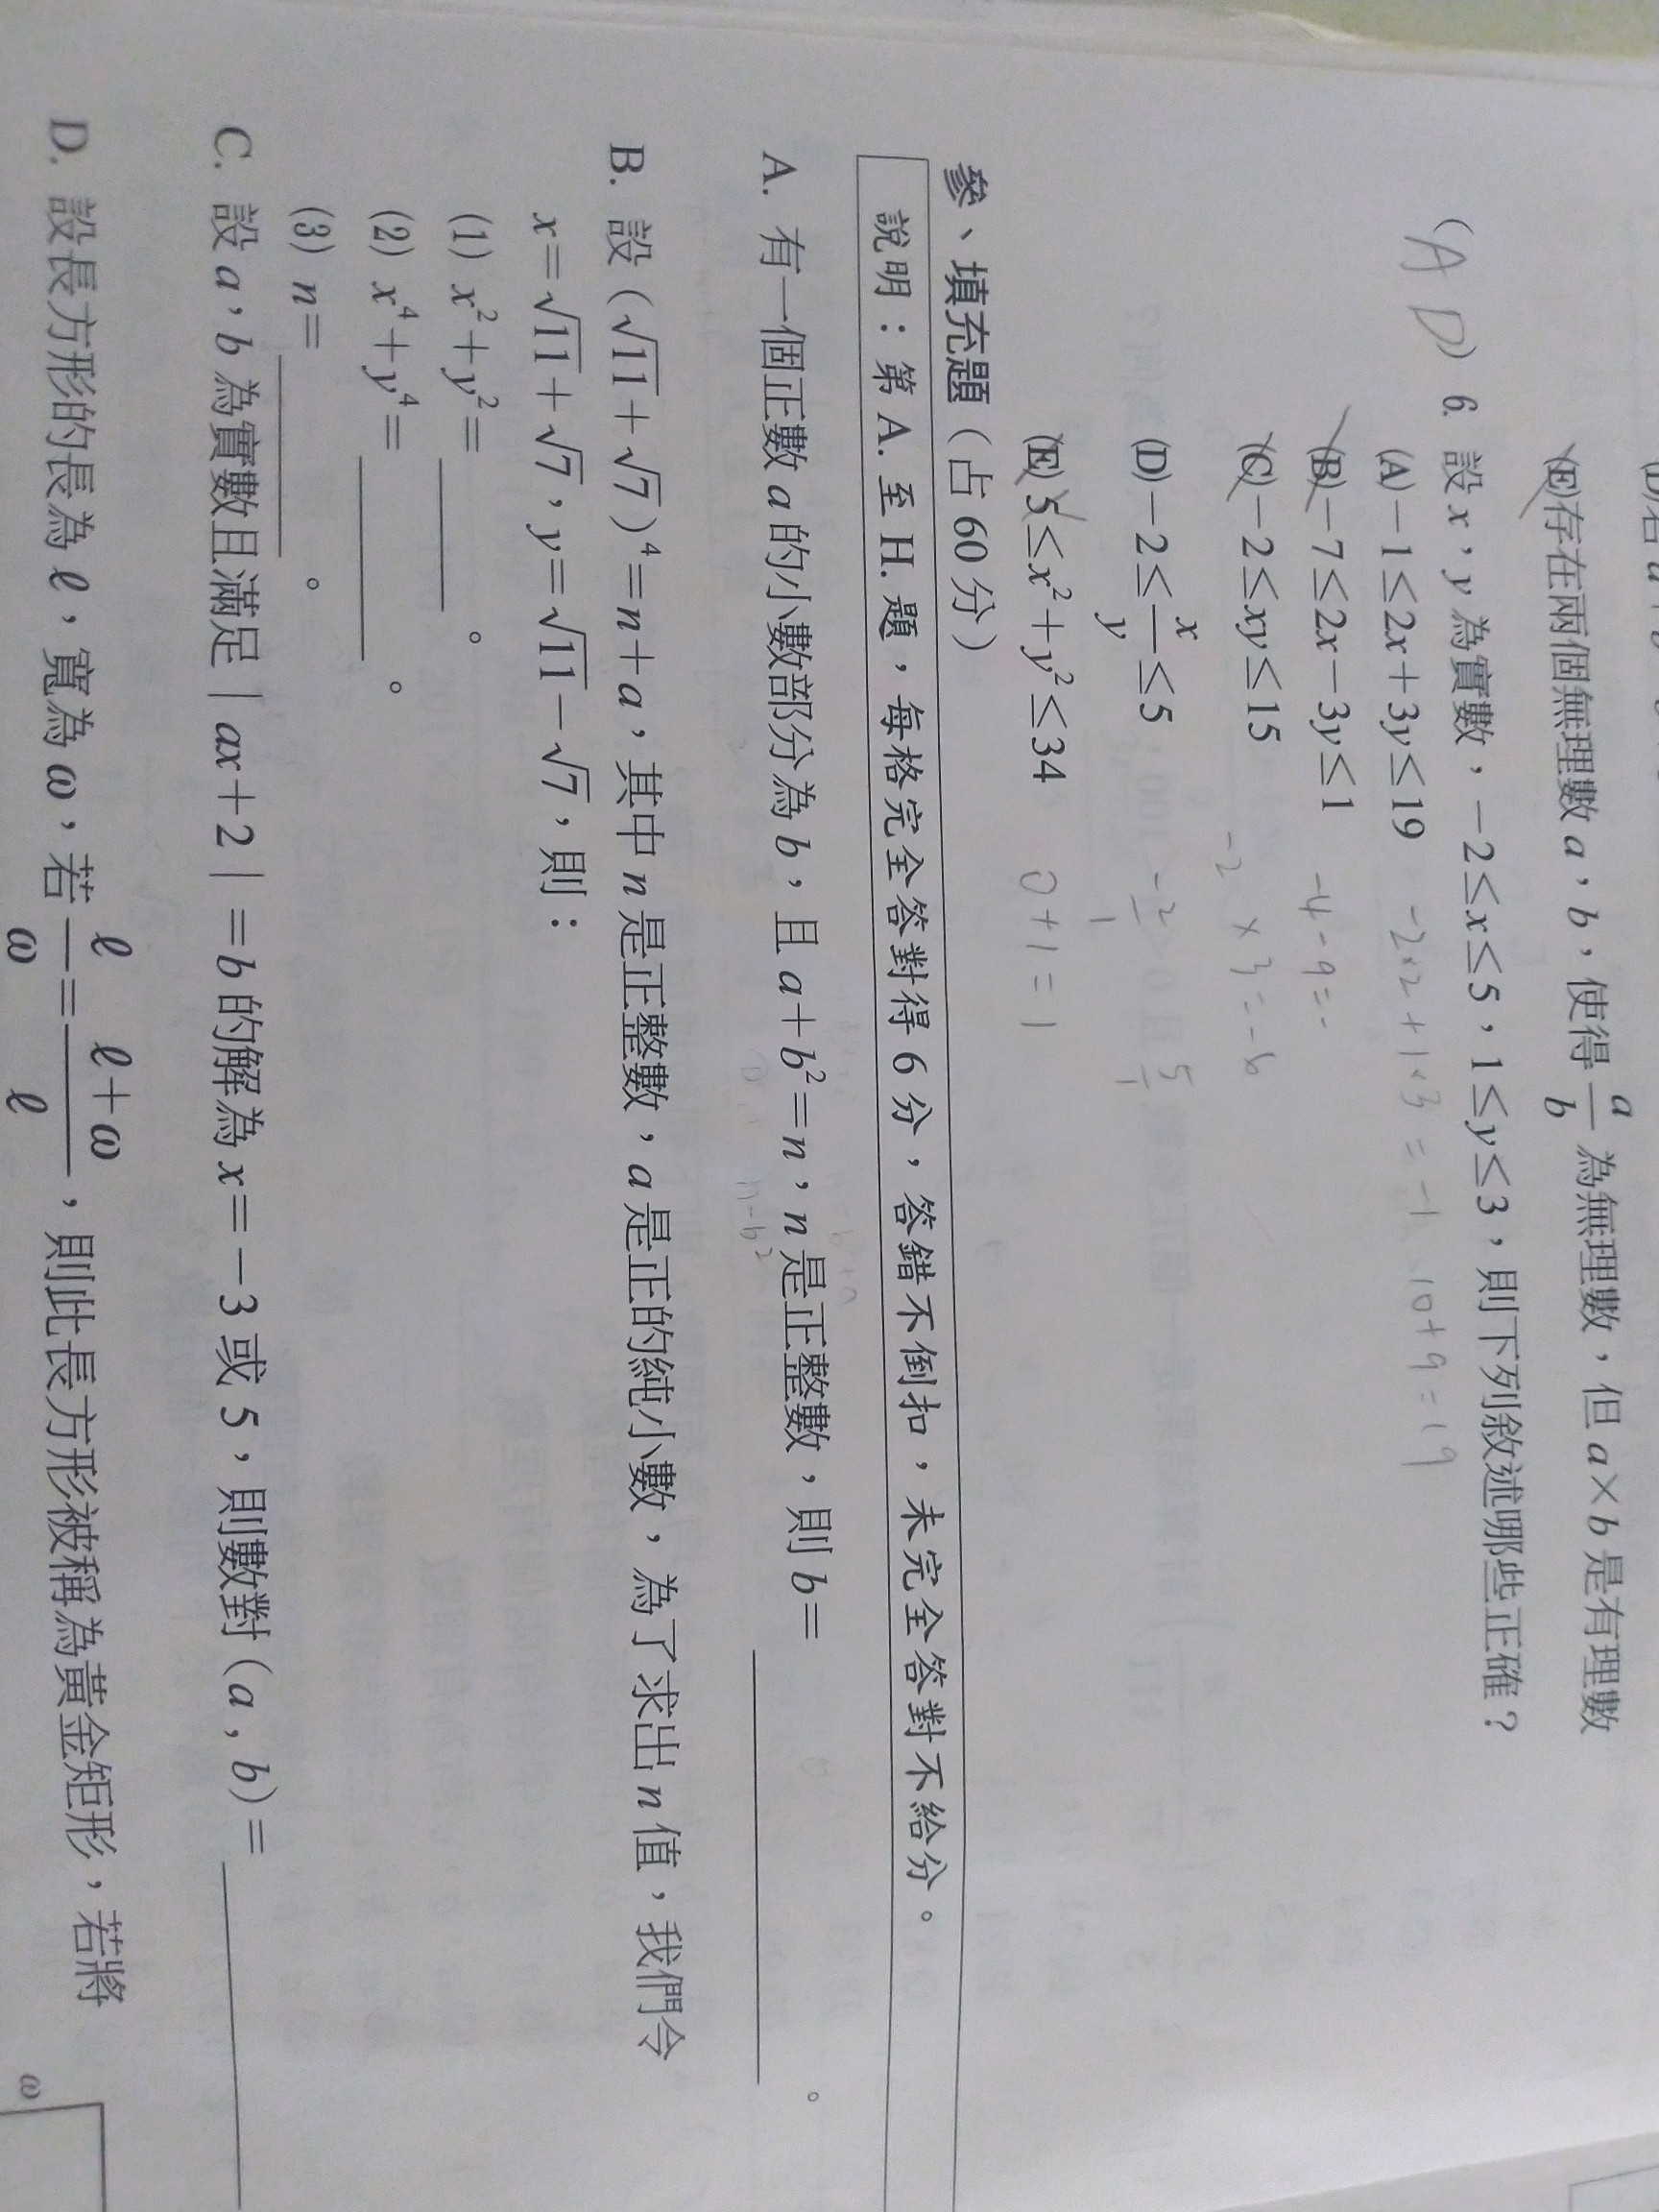 (E)存在兩個無理數 a，b，使得 a/b 為無理數，但 a×b 是有理數
(A D) 6. 設 x，y 為實數，−2≤x≤5，1≤y≤3，則下列敘述哪些正確？
(A)−1≤2x+3y≤19 -2×2+1×3=-1. 10+9=19
(B)−7≤2x−3y≤1 -4-9=-
(C)−2≤xy≤15 -2×3=-6
(D)−2≤x/y≤5 -2/1 5/1
(E)5≤x²+y²≤34 0+1=1
參、填充題（占 60 分）
說明：第 A. 至 H. 題，每格完全答對得 6 分，答錯不倒扣，未完全答對不給分。
A. 有一個正數 a 的小數部分為 b，且 a+b²=n，n 是正整數，則 b=＿＿＿＿。
n-b²
B. 設 (√11+√7)⁴=n+a，其中 n 是正整數，a 是正的純小數，為了求出 n 值，我們令
x=√11+√7，y=√11−√7，則：
(1) x²+y²=＿＿＿＿。
(2) x⁴+y⁴=＿＿＿＿。
(3) n=＿＿＿＿。
C. 設 a，b 為實數且滿足 | ax+2 | =b 的解為 x=−3 或 5，則數對 (a , b)=＿＿＿＿
D. 設長方形的長為 ℓ，寬為 ω，若 ℓ/ω=(ℓ+ω)/ℓ，則此長方形被稱為黃金矩形，若將
ω